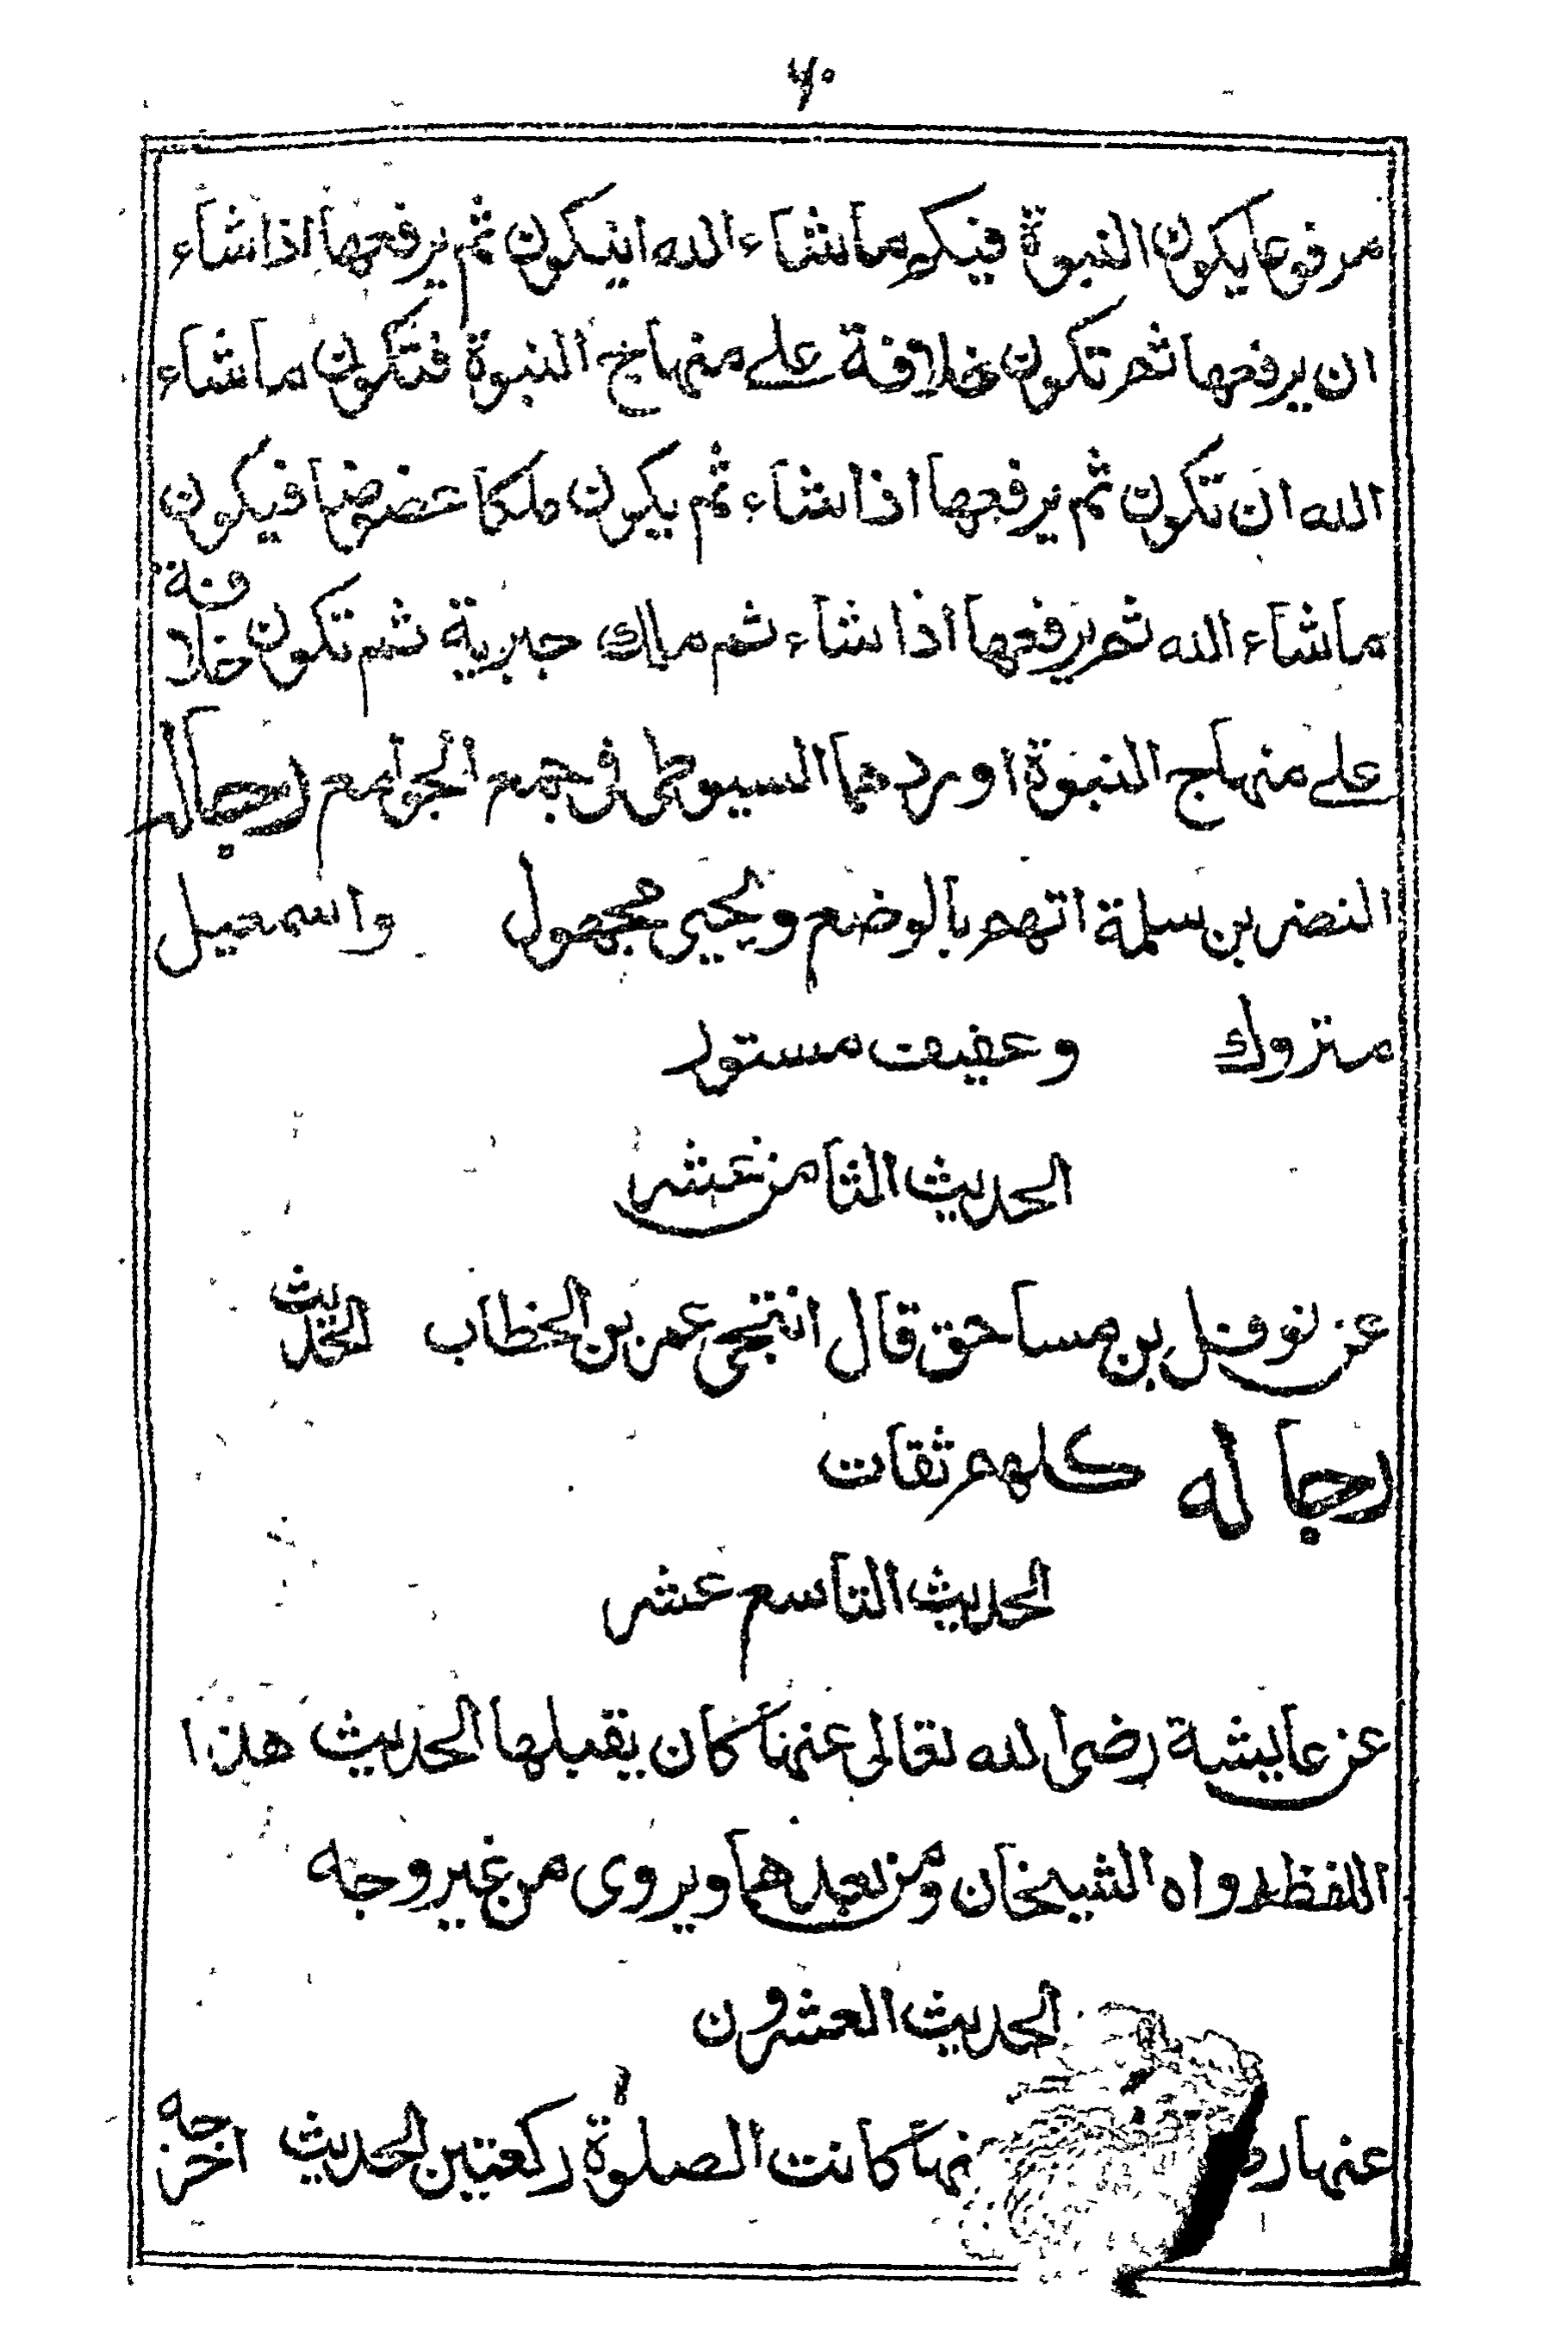 ۴۰
مرفوعا يكون النبوة فيكم ماشاء الله ان يكون ثم يرفعها اذا شاء
ان يرفعها ثم تكون خلافة على منهاج النبوة فتكون ماشاء
الله ان تكون ثم يرفعها اذا شاء ثم يكون ملكا عضوضا فيكون
ماشاء الله ثم يرفعها اذا شاء ثم ملك جبرية ثم تكون خلافة
على منهاج النبوة اوردهما السيوطى فى جمع الجوامع رجاله
النضر بن سلمة اتهم بالوضع ويحيى مجهول واسمعيل
متروك وعفيف مستور
الحديث الثامن عشر
عن نوفل بن مساحق قال انتجى عمر بن الخطاب الحديث
رجاله كلهم ثقات
الحديث التاسع عشر
عن عايشة رضى الله تعالى عنها كان يقبلها الحديث هذا
اللفظ رواه الشيخان ومن بعدهما ويروى من غير وجه
الحديث العشرون
عنها كانت الصلوة ركعتين الحديث اخرجه